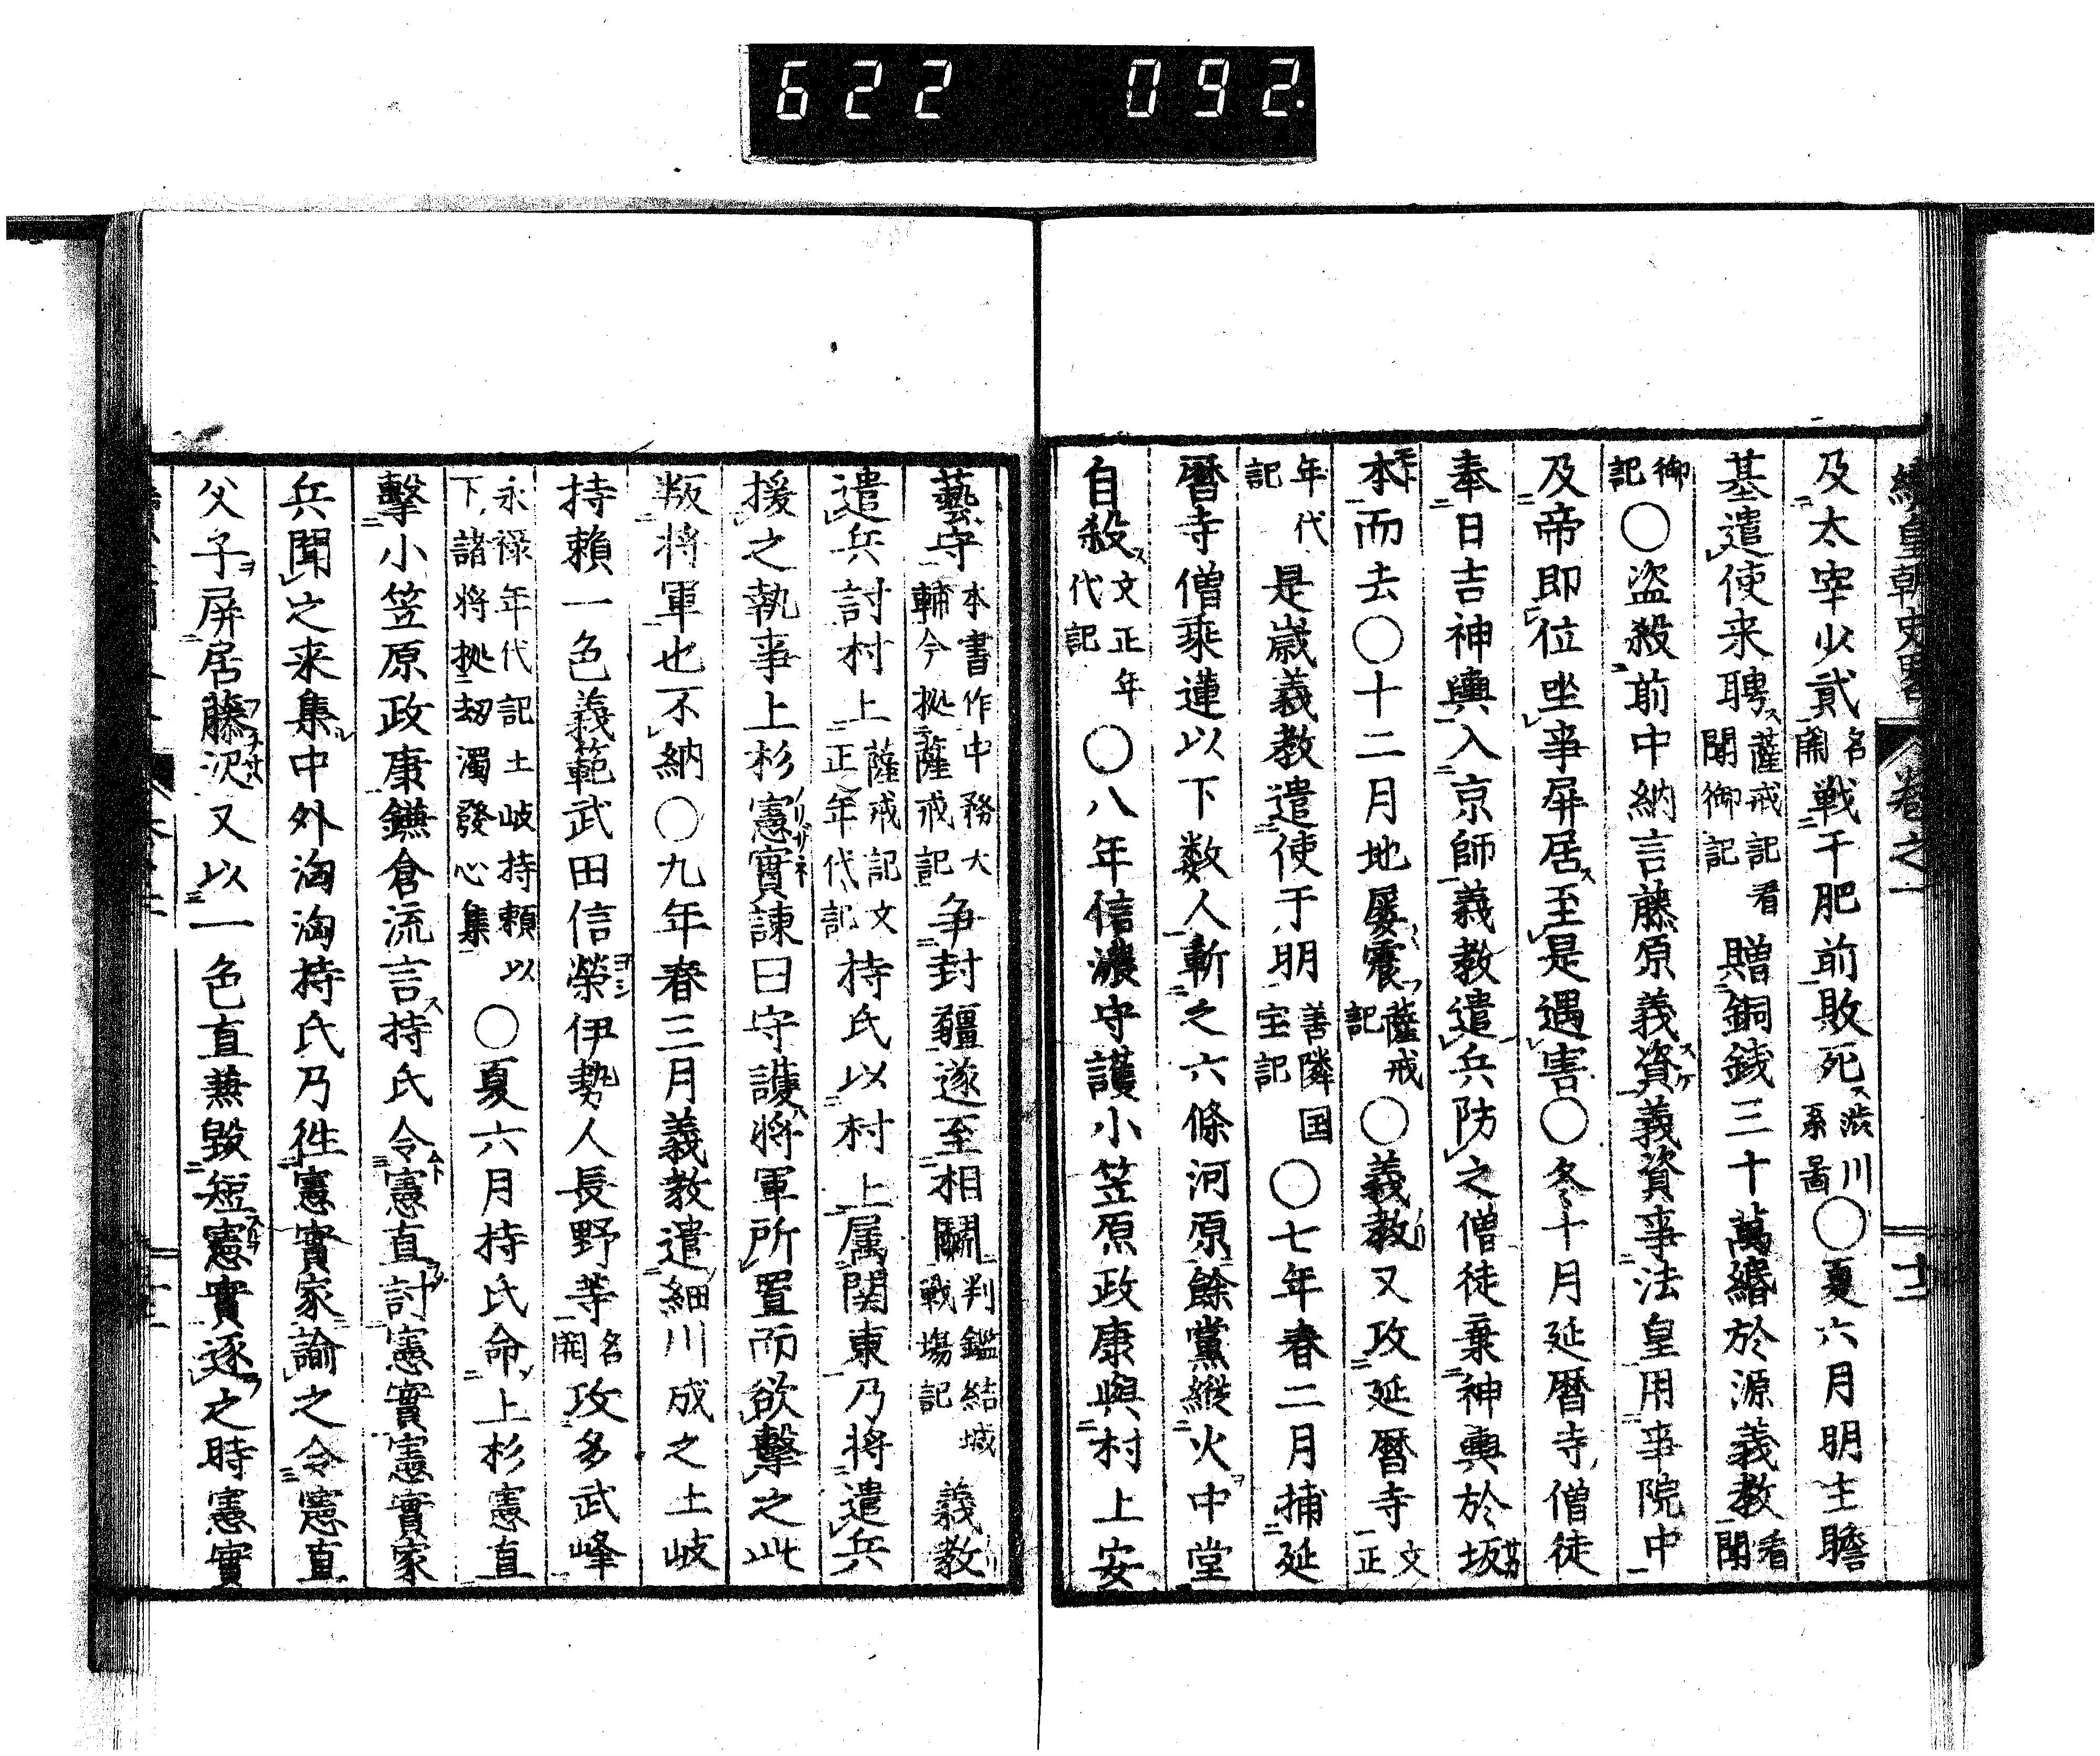 622 092.
續皇朝史略 卷之一 十二
及太宰少貳名闕戰于肥前敗死澁川系圖○夏六月明主瞻
基遣使来聘薩戒記看聞御記贈銅錢三十萬緡於源義教看聞
御記○盗殺前中納言藤原義資義資事法皇用事院中
及帝即位坐事屏居至是遇害○冬十月延暦寺僧徒
奉日吉神輿入京師義教遣兵防之僧徒棄神輿於坂
本而去○十二月地屡震薩戒記○義教又攻延暦寺文正
年代記是歲義教遣使于明善隣国宝記○七年春二月捕延
暦寺僧乘蓮以下数人斬之六條河原餘黨縱火中堂
自殺文正年代記○八年信濃守護小笠原政康與村上安
藝守本書作中務大輔今拠薩戒記争封疆遂至相鬪判鑑結城戦場記義教
遣兵討村上薩戒記文正年代記持氏以村上属関東乃将遣兵
援之執事上杉憲實諫曰守護将軍所置而欲擊之此
叛将軍也不納○九年春三月義教遣細川成之土岐
持頼一色義範武田信榮伊勢人長野等名闕攻多武峰
永禄年代記土岐持頼以下諸将拠刧濁發心集○夏六月持氏命上杉憲直
擊小笠原政康鎌倉流言持氏令憲直討憲實憲實家
兵聞之来集中外洶洶持氏乃徃憲實家諭之令憲直
父子屏居藤沢又以一色直兼毀短憲實逐之時憲實